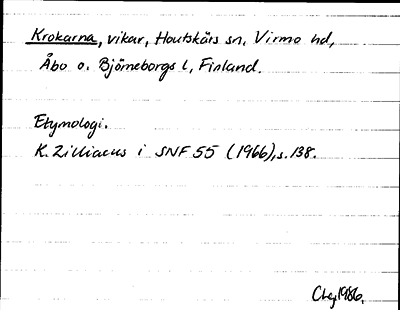 Krokarna, vikar, Houtskärs sn, Virmo hd,
Åbo o. Björneborgs l, Finland.
Etymologi.
K. Zilliacus i SNF 55 (1966), s. 138.
1986.